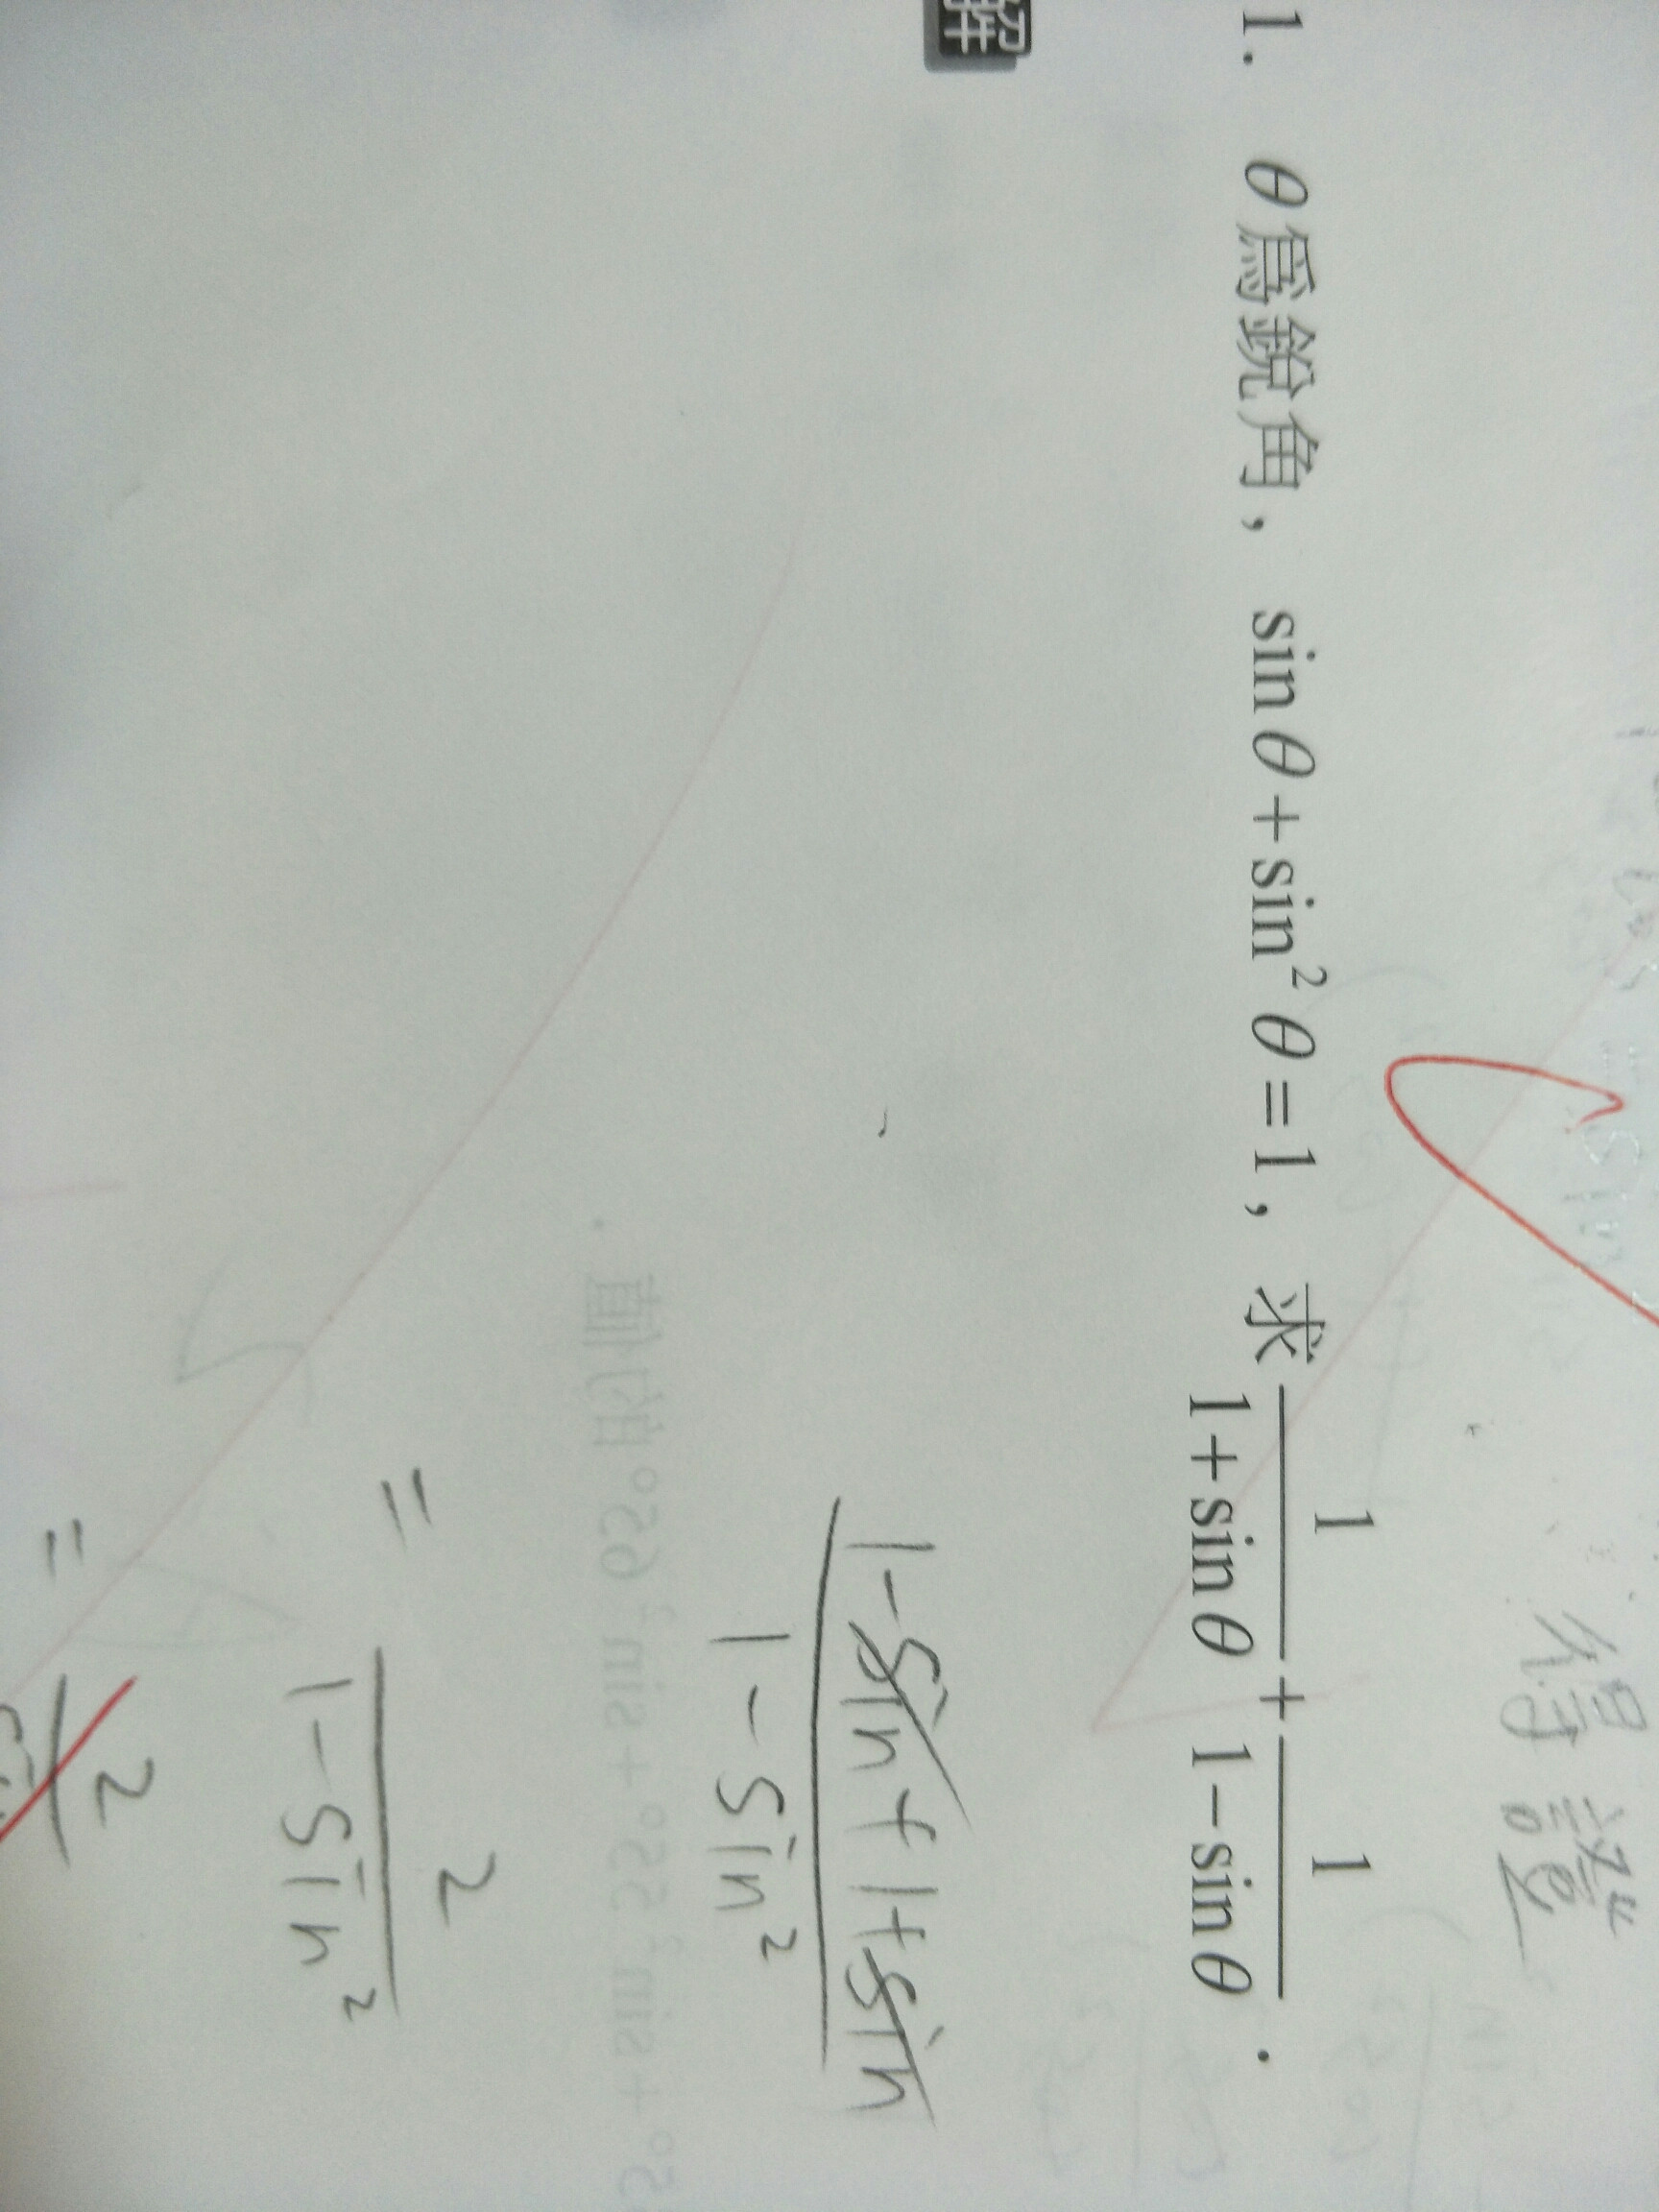 得證
1. θ為銳角，sinθ+sin²θ=1，求 1/(1+sinθ) + 1/(1-sinθ) .
解
(1-sin+1+sin)/(1-sin²)
= 2/(1-sin²)
= 2/